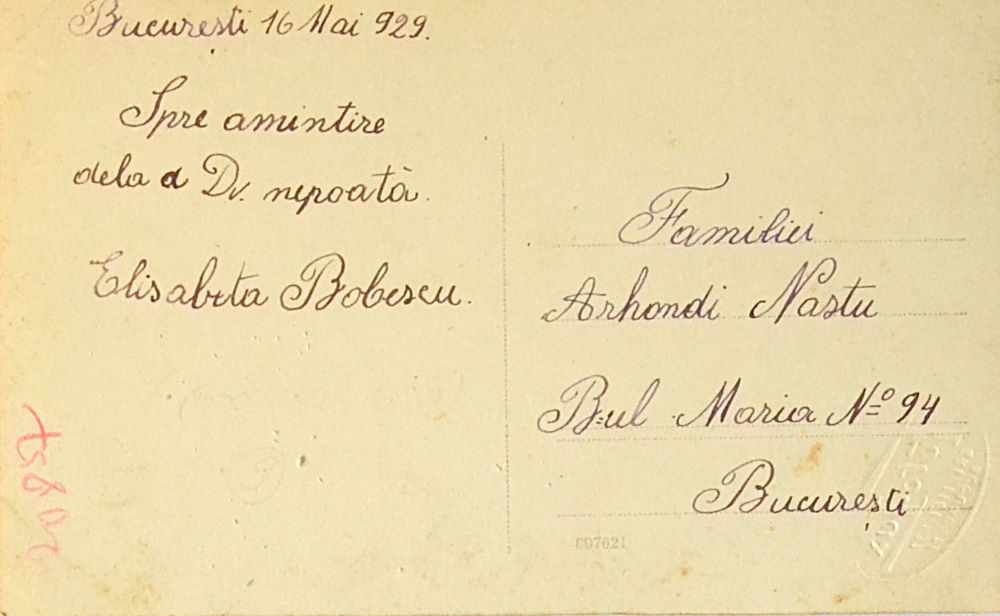 București 16 Mai 929.
Spre amintire
dela a Dv. nepoată.
Elisabeta Bobescu.
Familiei
Arhondi Nastu
B-ul Maria Nº 94
București
807621